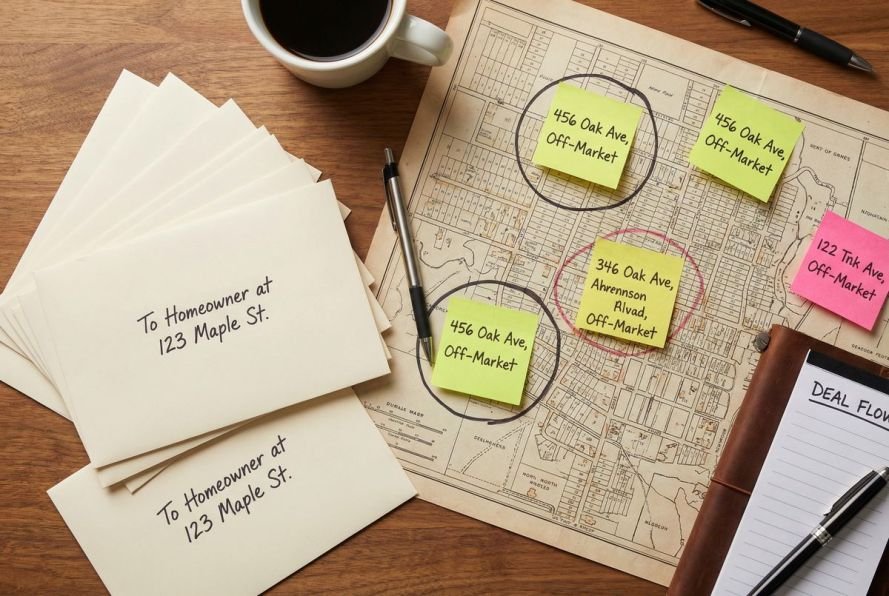 To Homeowner at
123 Maple St.
To Homeowner at
123 Maple St.
456 Oak Ave,
Off-Market
456 Oak Ave,
Off-Market
122 Tnk Ave,
Off-Market
346 Oak Ave,
Ahrennson
Rivad,
Off-Market
456 Oak Ave,
Off-Market
DEAL FLOW